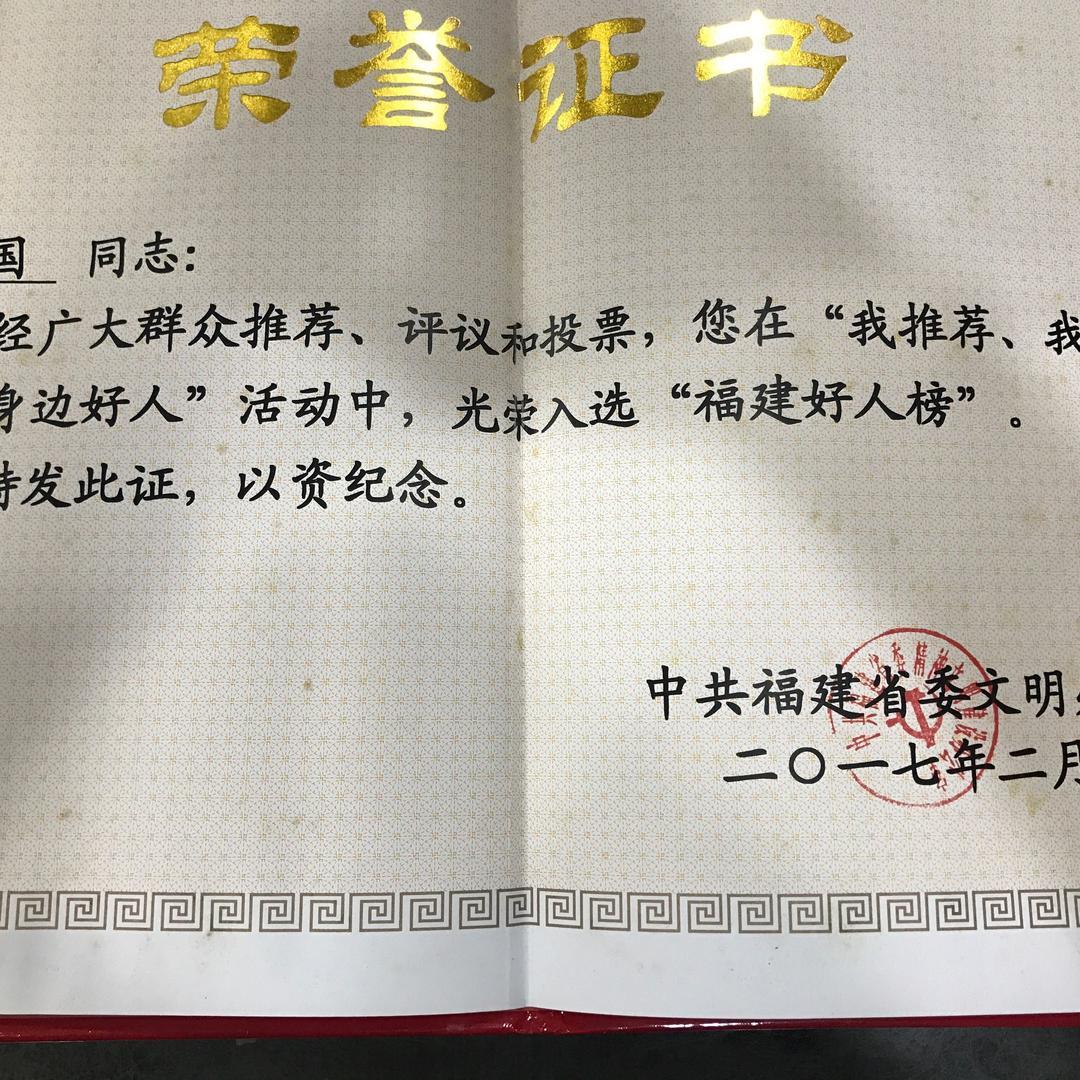 荣誉证书
国 同志：
经广大群众推荐、评议和投票，您在“我推荐、我
身边好人”活动中，光荣入选“福建好人榜”。
特发此证，以资纪念。
中共福建省委文明
二〇一七年二月